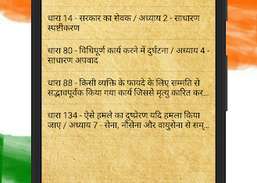 धारा 14 - सरकार का सेवक / अध्याय 2 - साधारण
स्पष्टीकरण
धारा 80 - विधिपूर्ण कार्य करने में दुर्घटना / अध्याय 4 -
साधारण अपवाद
धारा 88 - किसी व्यक्ति के फायदे के लिए सम्मति से
सद्भावपूर्वक किया गया कार्य जिससे मृत्यु कारित कर...
धारा 134 - ऐसे हमले का दुष्प्रेरण यदि हमला किया
जाए / अध्याय 7 - सेना, नौसेना और वायुसेना से सम्...